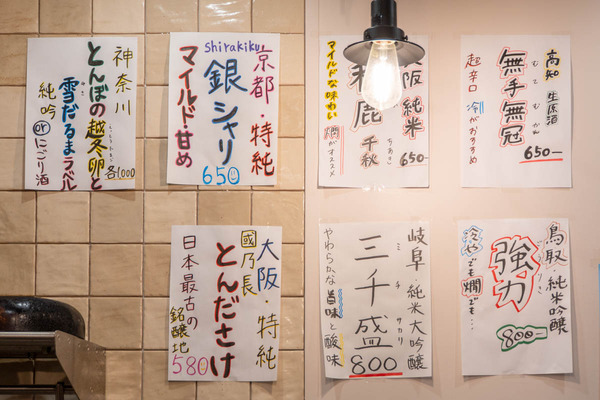 神奈川
とんぼの越冬卵と
雪だるまラベル
各1000
純吟 or にごり酒
shirakiku
京都・特純
銀シャリ
マイルド・甘め
650
阪 純米
鹿 千秋
マイルドな味わい
燗がオススメ
650-
高知 生原酒
無手無冠
超辛口 冷がおすすめ
650-
大阪・特純
國乃長
とんださけ
日本最古の
銘醸地
580
岐阜 純米大吟醸
三千盛
ミチサカリ
やわらかな旨味と酸味
800
鳥取・純米吟醸
強力
冷やでも燗でも…
800-